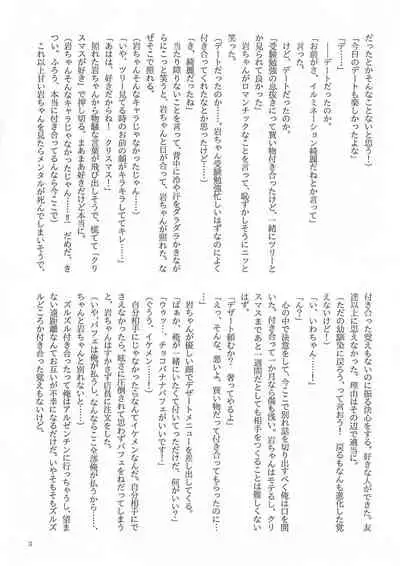 だったとかそんなことないと思う！）
「今日のデートも楽しかったよな」
「デ……」
――デートだったのか。
けど、デートだったのか。
「受験勉強の息抜きにって買い物付き合ったけど、一緒にツリーと
か見られて良かった」
「お前がさ、イルミネーション綺麗だねとか言って」
言った。
岩ちゃんがロマンチックなことを言って、恥ずかしそうにニッと
笑った。
（デートだったのか……。岩ちゃん受験勉強忙しいはずなのによく
付き合ってくれたなとか思ったけど……）
「き、綺麗だったね」
当たり障りないことを言って、背中に冷や汗をダラダラかきなが
らにこっと笑うと、岩ちゃんと目が合って、岩ちゃんが照れた。な
ぜそこで照れる。
（岩ちゃんそんなキャラじゃなかったじゃん……）
「いや、ツリー見てる時のお前の顔がキラキラしててキレ……」
「あはは、好きだからね！　クリスマス！」
照れた岩ちゃんから物騒な言葉が飛び出しそうで、慌てて「クリ
スマスが好き」で押し切る。まあまあ好きだけど本当に。
（岩ちゃんそんなキャラじゃなかったじゃん……！）　だめだ、き
つい。ふろう、本当に付き合ってるんなら今ここで）
これ以上甘い岩ちゃんを見たらメンタルが死んでしまいそうで、
付き合った覚えもないのに振る決心をする。好きな人ができた。友
達以上に思えなかった。理由はその辺で適当に。
（ただの幼馴染に戻ろう、って言おう！　戻るもなんも進化した覚
えないけど！）
「い、いわちゃん……」
「ん？」
心の中で決意をして、今ここで別れ話を切り出すべく俺は口を開
いた。付き合って一か月なら傷も浅い。岩ちゃんはモテるし、クリ
スマスまであと一週間だとしても相手をつくることは難しくない
はず。
「デザート頼むか？　奢ってやるよ」
「えっ、そんな、悪いよ。買い物だって付き合ってもらったのに
…」
岩ちゃんが優しい顔でデザートメニューを差し出してくる。
「ばぁか、俺が一緒にいたくて付いてっただけだ。何がいい？」
「ウゥッ……チョコバナナパフェがいいです！」
（ぐうう、イケメン……！）
自分相手にじゃなかったらなんてイケメンなんだ。自分相手にで
さえなかったら。咄嗟に圧倒されて思わずパフェをねだってしまう
と、岩ちゃんはすかさず店員に注文をした。
（いや、パフェは俺が払うし、なんならここ全部俺が払うから……、
ちゃんと岩ちゃんと別れないと……）
ズルズル付き合ったって俺はアルゼンチンに行っちゃうし、望ま
ない遠距離なんてお互いが不幸になるだけだ。いやそもそもズルズ
ルどころか付き合った覚えもないけど。
3